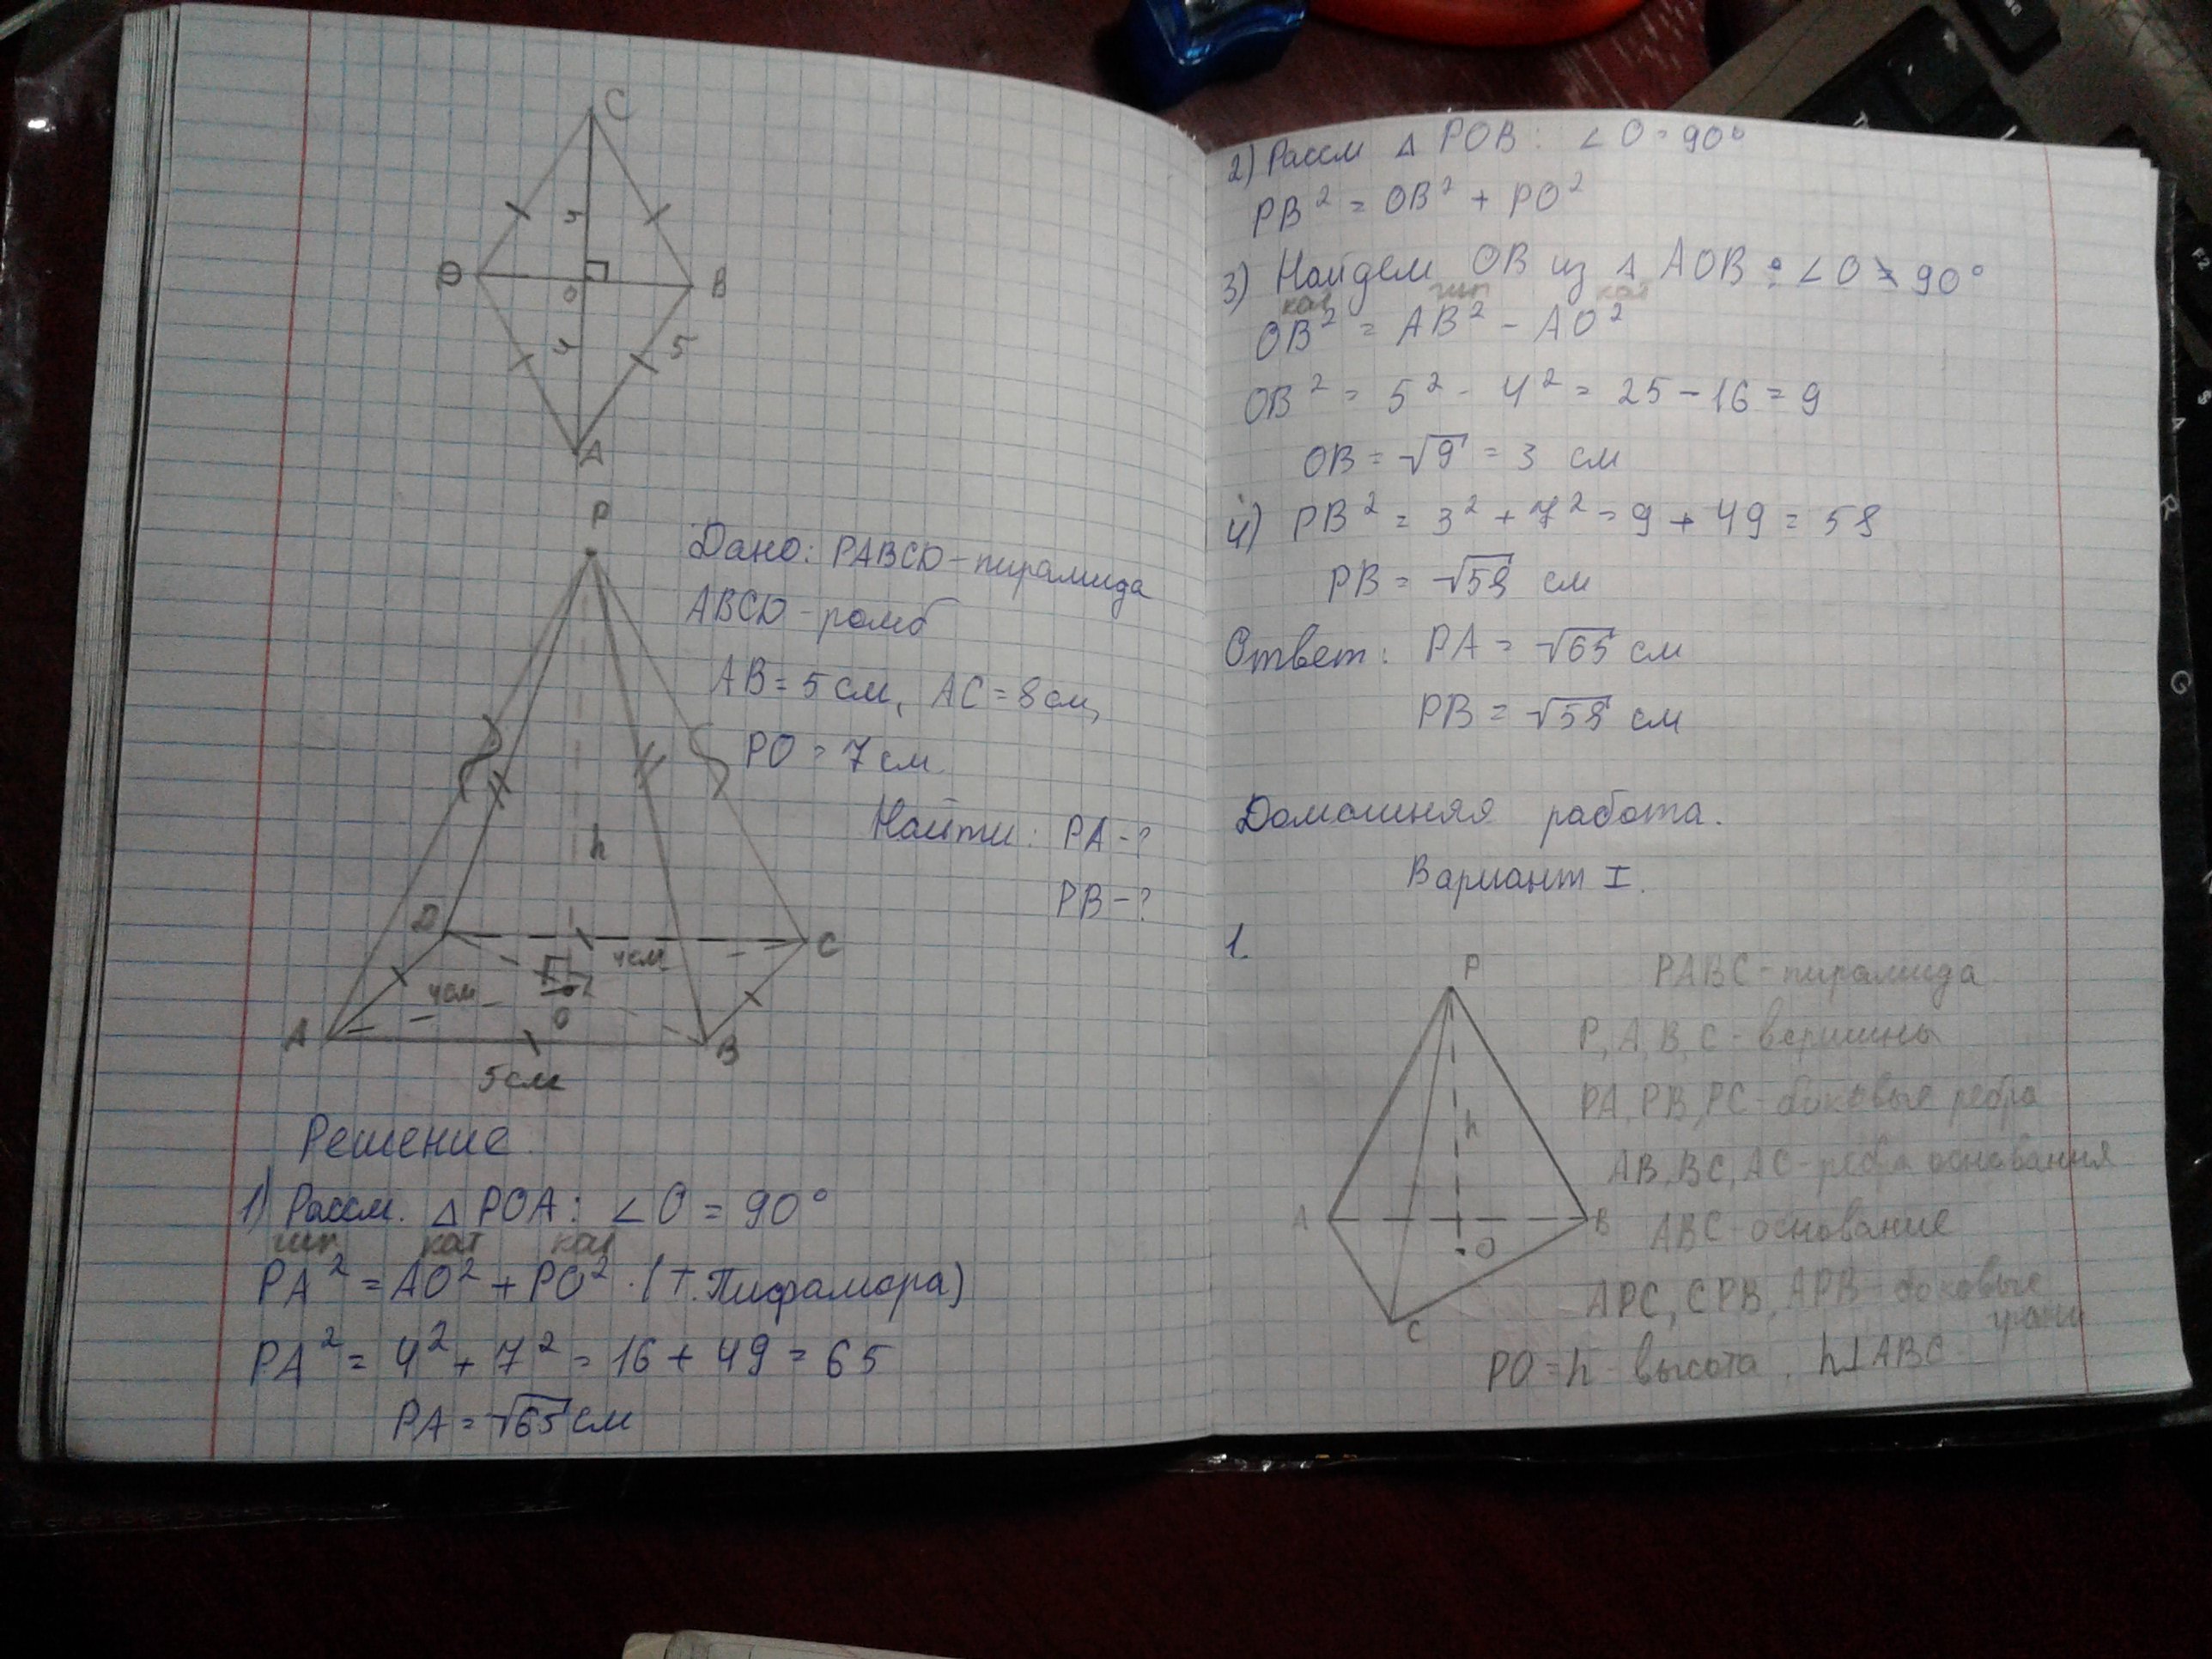 C
4
D
О
B
4
5
A
P
Дано: PABCD - пирамида
ABCD - ромб
AB = 5 см, AC = 8 см,
PO = 7 см
Найти: PA - ?
PB - ?
h
D
C
4см
4см
O
A
B
5см
Решение
1) Рассм. △ POA: ∠O = 90°
гип кат кат
PA² = AO² + PO² (т. Пифамора)
PA² = 4² + 7² = 16 + 49 = 65
PA = √65 см
2) Рассм △ POB: ∠O = 90°
PB² = OB² + PO²
3) Найдем OB из △ AOB: ∠O = 90°
кат гип кат
OB² = AB² - AO²
OB² = 5² - 4² = 25 - 16 = 9
OB = √9 = 3 см
4) PB² = 3² + 7² = 9 + 49 = 58
PB = √58 см
Ответ: PA = √65 см
PB = √58 см
Домашняя работа.
Вариант I.
1.
P
h
A
B
O
C
PABC - пирамида
P, A, B, C - вершины
PA, PB, PC - боковые ребра
AB, BC, AC - ребра основания
ABC - основание
APC, CPB, APB - боковые
грани
PO = h - высота, h⊥ABC